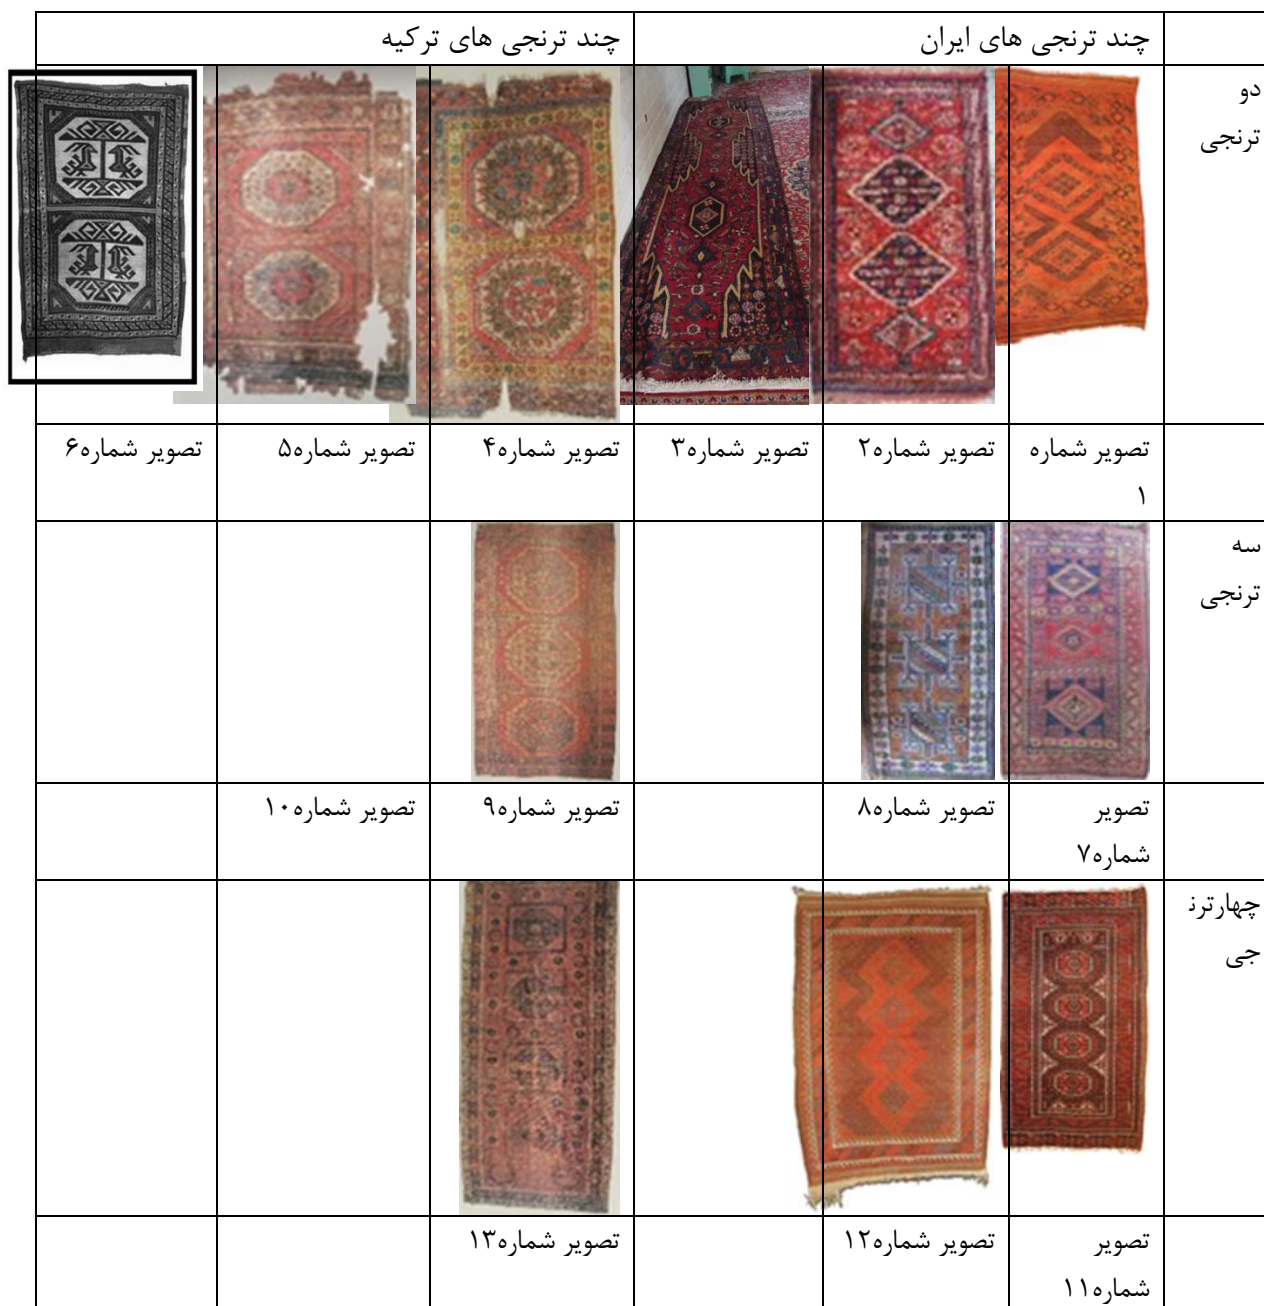 چند ترنجی های ایران
چند ترنجی های ترکیه
دو
ترنجی
تصویر شماره
۱
تصویر شماره۲
تصویر شماره۳
تصویر شماره۴
تصویر شماره۵
تصویر شماره۶
سه
ترنجی
تصویر
شماره۷
تصویر شماره۸
تصویر شماره۹
تصویر شماره۱۰
چهارترن
جی
تصویر
شماره۱۱
تصویر شماره۱۲
تصویر شماره۱۳